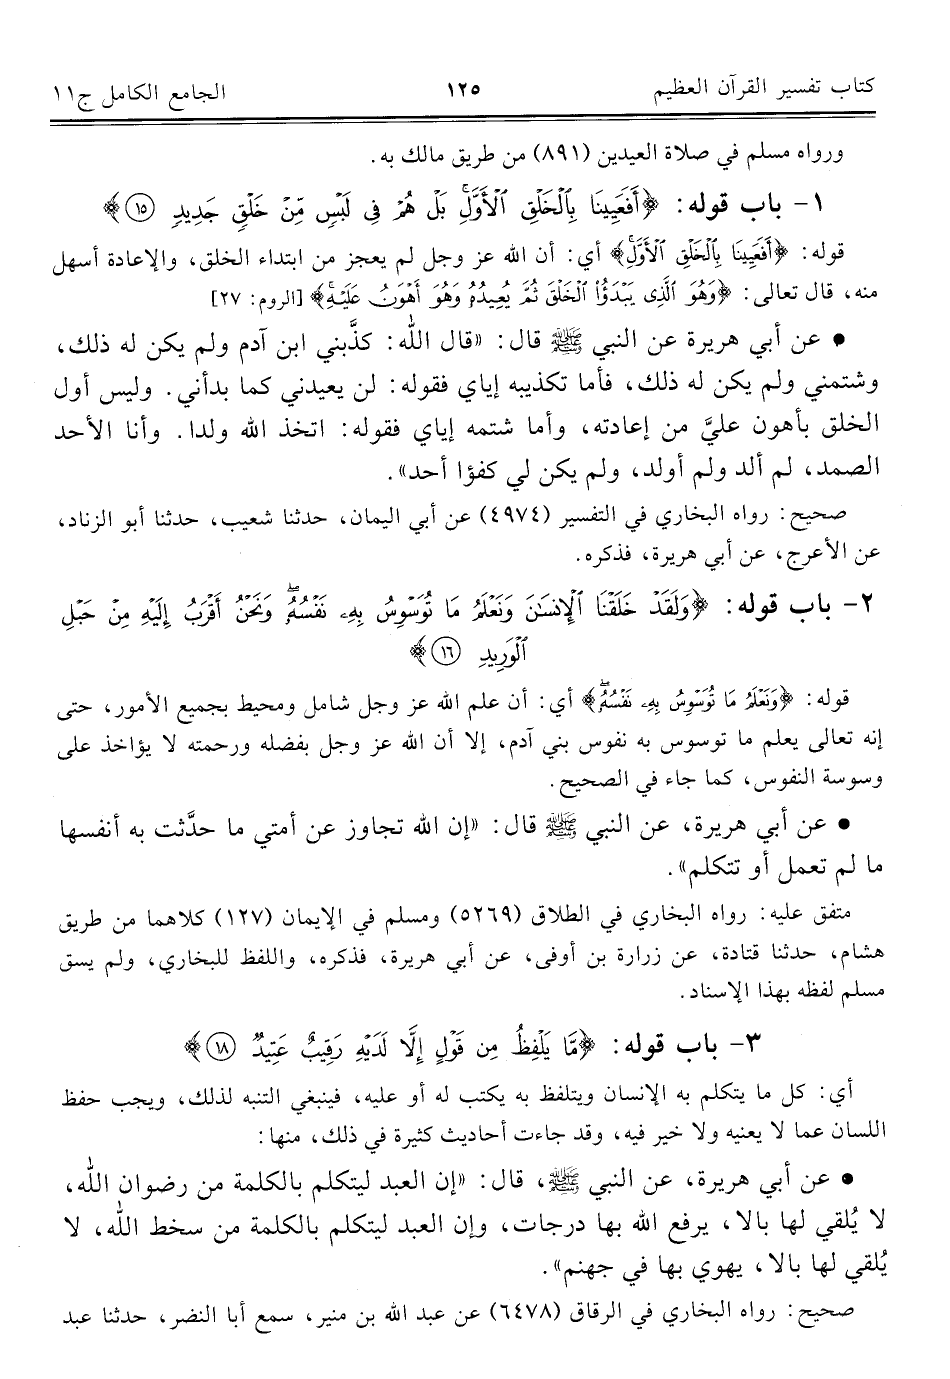 كتاب تفسير القرآن العظيم ١٢٥ الجامع الكامل ج١١
ورواه مسلم في صلاة العيدين (٨٩١) من طريق مالك به.
١- باب قوله: ﴿أَفَعَيِينَا بِٱلْخَلْقِ ٱلْأَوَّلِۚ بَلْ هُمْ فِى لَبْسٍ مِّنْ خَلْقٍ جَدِيدٍ ١٥﴾
قوله: ﴿أَفَعَيِينَا بِٱلْخَلْقِ ٱلْأَوَّلِۚ﴾ أي: أن الله عز وجل لم يعجز من ابتداء الخلق، والإعادة أسهل
منه، قال تعالى: ﴿وَهُوَ ٱلَّذِى يَبْدَؤُا۟ ٱلْخَلْقَ ثُمَّ يُعِيدُهُۥ وَهُوَ أَهْوَنُ عَلَيْهِۚ﴾ [الروم: ٢٧]
● عن أبي هريرة عن النبي ﷺ قال: «قال الله: كذَّبني ابن آدم ولم يكن له ذلك،
وشتمني ولم يكن له ذلك، فأما تكذيبه إياي فقوله: لن يعيدني كما بدأني. وليس أول
الخلق بأهون عليَّ من إعادته، وأما شتمه إياي فقوله: اتخذ الله ولدا. وأنا الأحد
الصمد، لم ألد ولم أولد، ولم يكن لي كفؤا أحد».
صحيح: رواه البخاري في التفسير (٤٩٧٤) عن أبي اليمان، حدثنا شعيب، حدثنا أبو الزناد،
عن الأعرج، عن أبي هريرة، فذكره.
٢- باب قوله: ﴿وَلَقَدْ خَلَقْنَا ٱلْإِنسَٰنَ وَنَعْلَمُ مَا تُوَسْوِسُ بِهِۦ نَفْسُهُۥۖ وَنَحْنُ أَقْرَبُ إِلَيْهِ مِنْ حَبْلِ
ٱلْوَرِيدِ ١٦﴾
قوله: ﴿وَنَعْلَمُ مَا تُوَسْوِسُ بِهِۦ نَفْسُهُۥۖ﴾ أي: أن علم الله عز وجل شامل ومحيط بجميع الأمور، حتى
إنه تعالى يعلم ما توسوس به نفوس بني آدم، إلا أن الله عز وجل بفضله ورحمته لا يؤاخذ على
وسوسة النفوس، كما جاء في الصحيح.
● عن أبي هريرة، عن النبي ﷺ قال: «إن الله تجاوز عن أمتي ما حدَّثت به أنفسها
ما لم تعمل أو تتكلم».
متفق عليه: رواه البخاري في الطلاق (٥٢٦٩) ومسلم في الإيمان (١٢٧) كلاهما من طريق
هشام، حدثنا قتادة، عن زرارة بن أوفى، عن أبي هريرة، فذكره، واللفظ للبخاري، ولم يسق
مسلم لفظه بهذا الإسناد.
٣- باب قوله: ﴿مَّا يَلْفِظُ مِن قَوْلٍ إِلَّا لَدَيْهِ رَقِيبٌ عَتِيدٌ ١٨﴾
أي: كل ما يتكلم به الإنسان ويتلفظ به يكتب له أو عليه، فينبغي التنبه لذلك، ويجب حفظ
اللسان عما لا يعنيه ولا خير فيه، وقد جاءت أحاديث كثيرة في ذلك، منها:
● عن أبي هريرة، عن النبي ﷺ، قال: «إن العبد ليتكلم بالكلمة من رضوان الله،
لا يُلقي لها بالا، يرفع الله بها درجات، وإن العبد ليتكلم بالكلمة من سخط الله، لا
يُلقي لها بالا، يهوي بها في جهنم».
صحيح: رواه البخاري في الرقاق (٦٤٧٨) عن عبد الله بن منير، سمع أبا النضر، حدثنا عبد